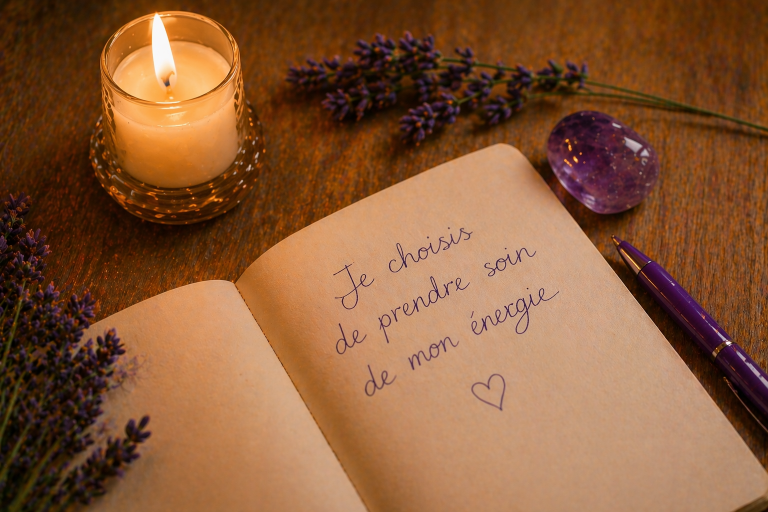 Je choisis
de prendre soin
de mon énergie